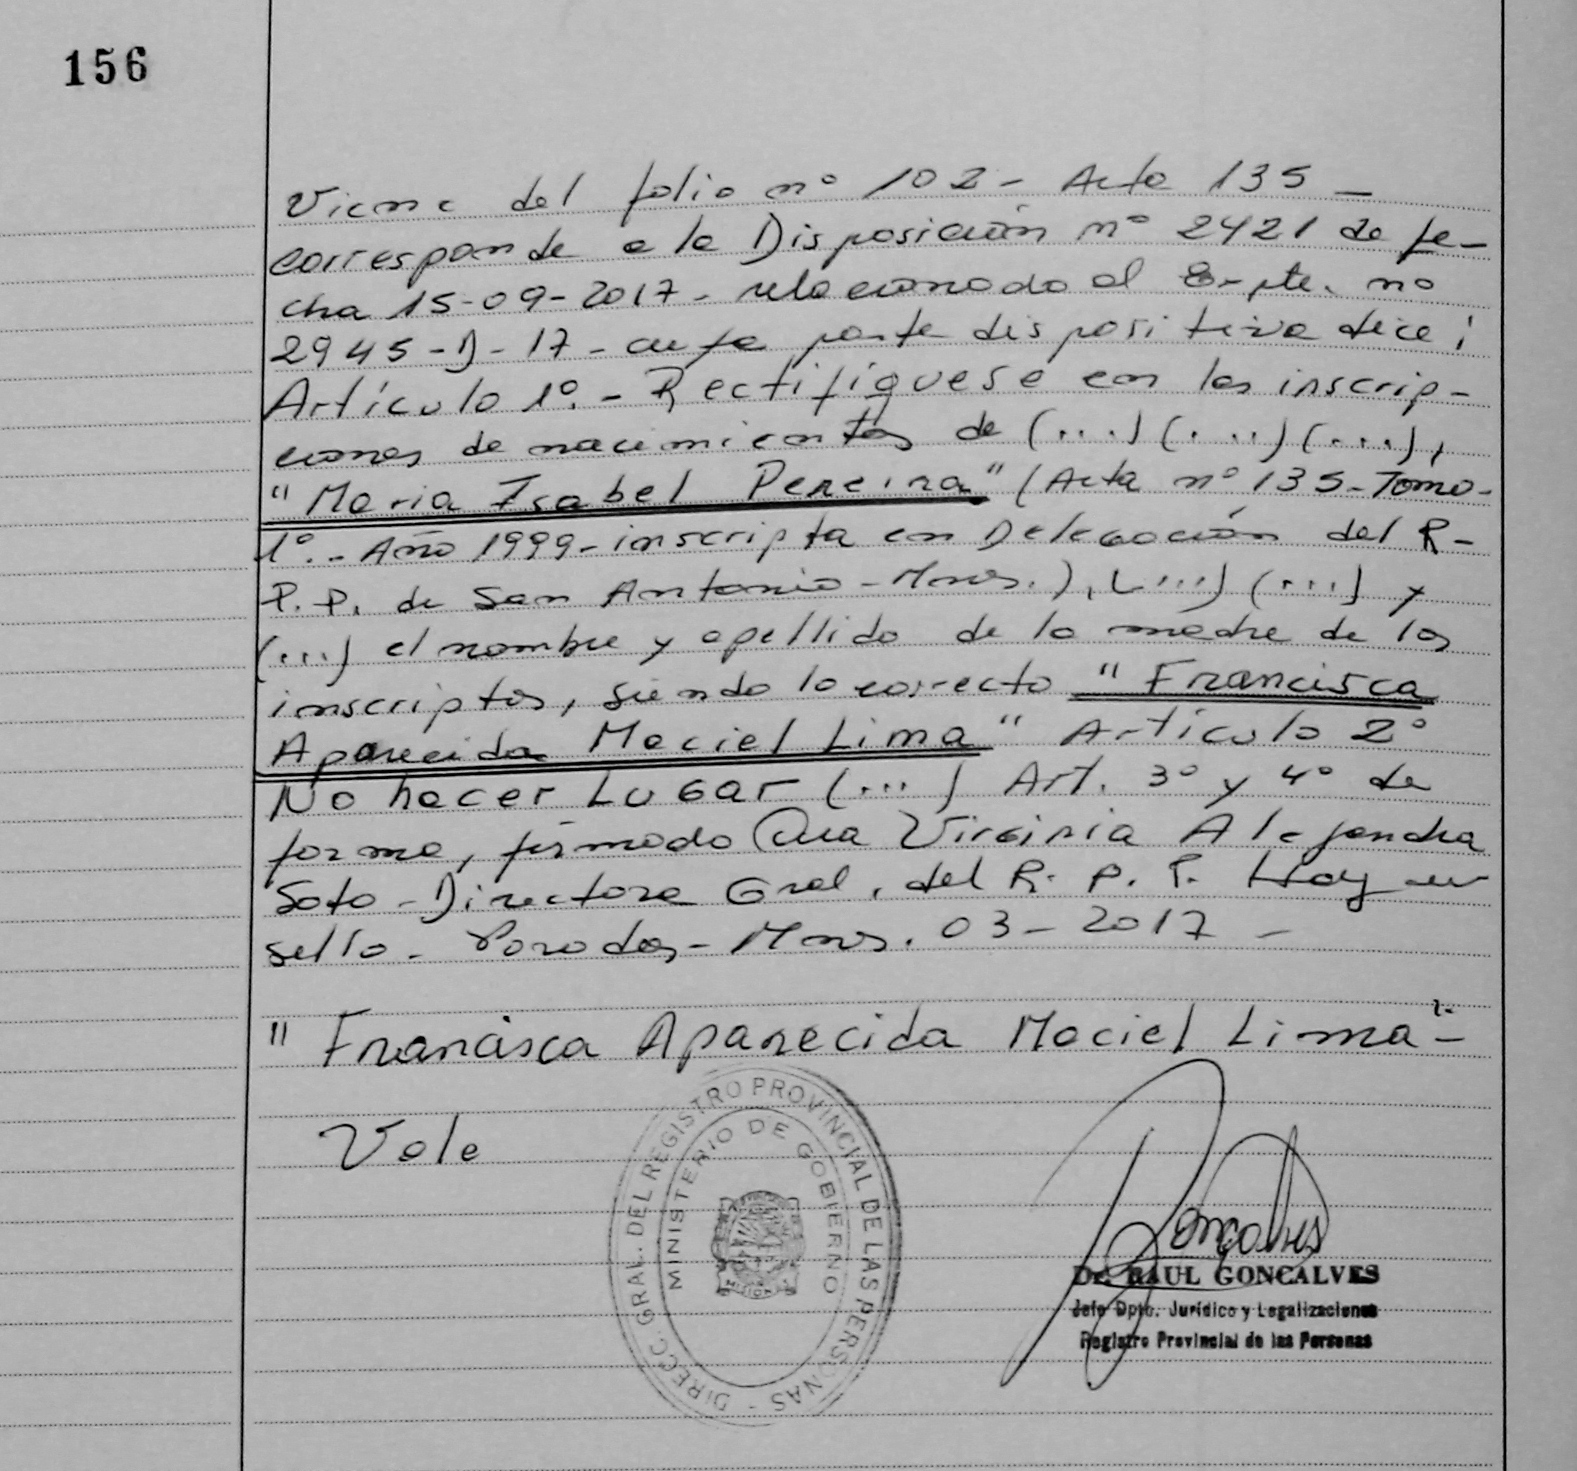 156
Viene del folio nº 102 - Acta 135 -
corresponde a la Disposición nº 2421 de fe-
cha 15-09-2017 - relacionado al Expte. nº
2945-D-17 - cuya parte dispositiva dice:
Artículo 1º. - Rectifíquese en las inscrip-
ciones de nacimientos de (...) (...) (...),
"Maria Isabel Pereira" (Acta nº 135 - Tomo -
1º. - Año 1999 - inscripta en Delegación del R-
P.P. de San Antonio - Mnes.), (...) (...) y
(...) el nombre y apellido de la madre de los
inscriptos, siendo lo correcto "Francisca
Aparecida Maciel Lima" Artículo 2º
No hacer Lugar (...) Art. 3º y 4º de
forma, firmado Dra Virginia Alejandra
Soto - Directora Gral. del R. P. P. Hay un
sello - Posadas - Mnes. 03 - 2017 -
"Francisca Aparecida Maciel Lima" -
Vale
DIRECC. GRAL. DEL REGISTRO PROVINCIAL DE LAS PERSONAS -
MINISTERIO DE GOBIERNO
Gonçalves
Dr. RAUL GONCALVES
Jefe Dpto. Jurídico y Legalizaciones
Registro Provincial de las Personas